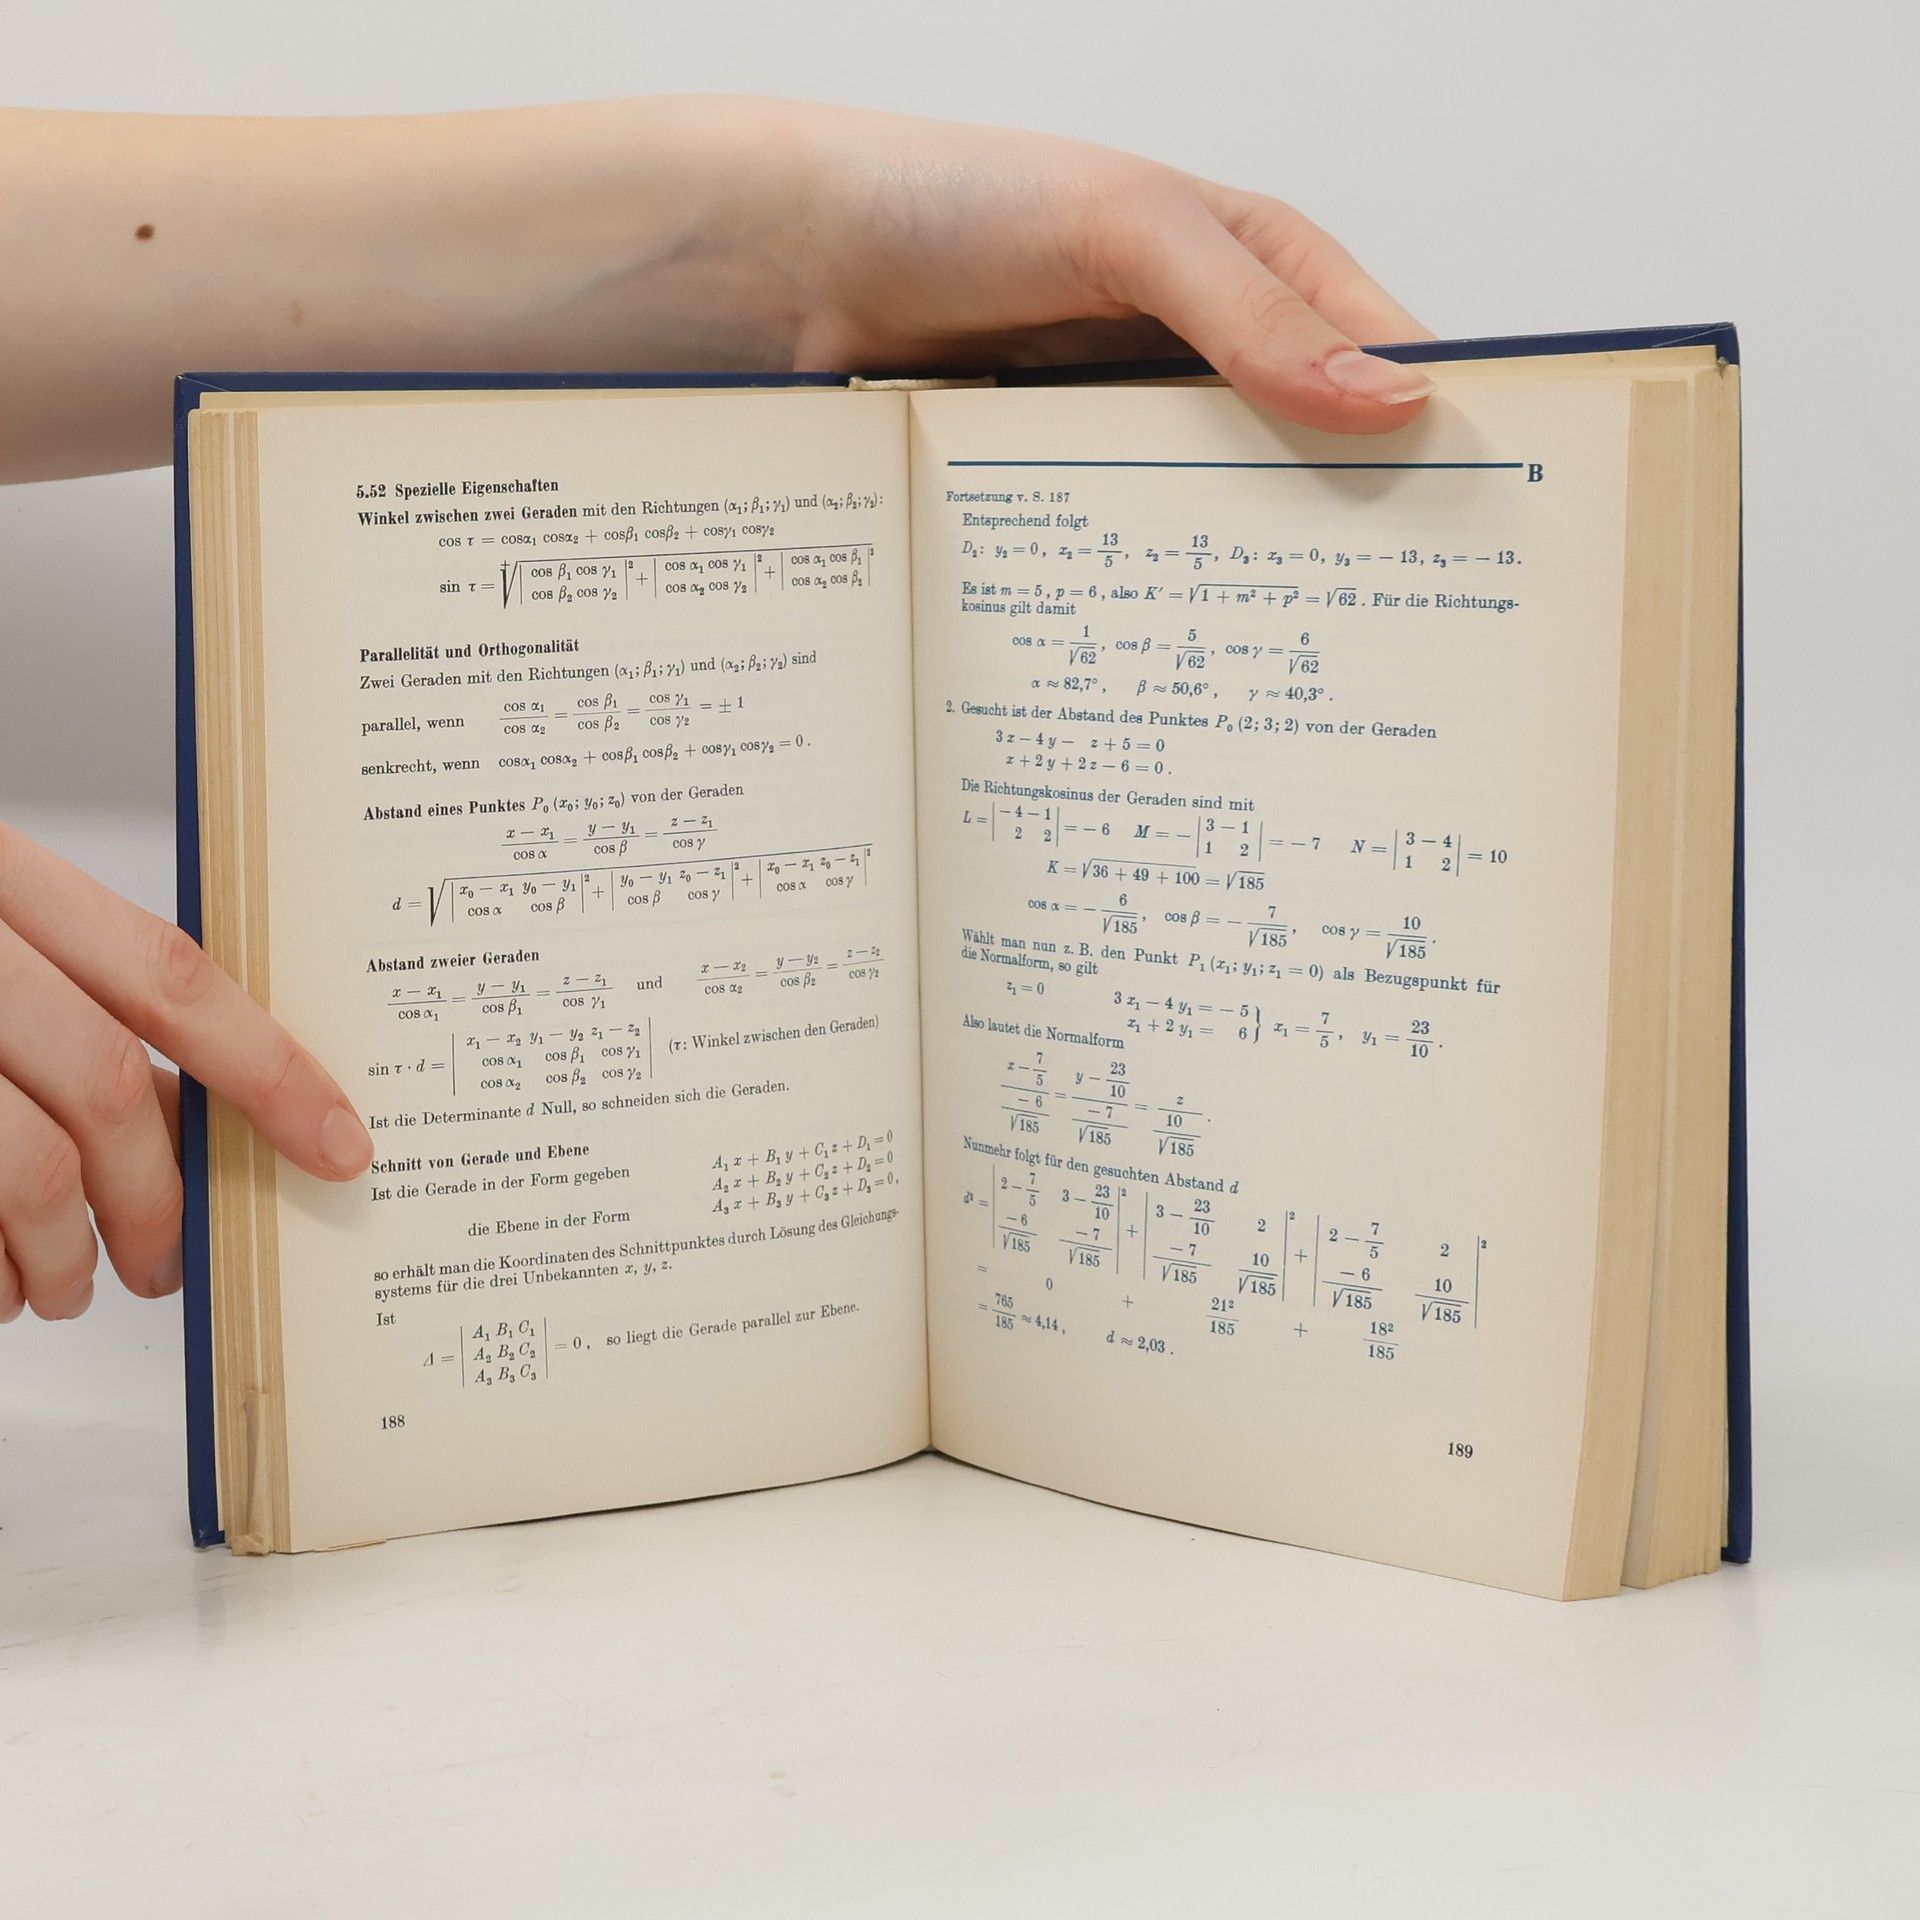 5.52 Spezielle Eigenschaften
Winkel zwischen zwei Geraden mit den Richtungen (α₁; β₁; γ₁) und (α₂; β₂; γ₂):
cos τ = cosα₁ cosα₂ + cosβ₁ cosβ₂ + cosγ₁ cosγ₂
sin τ = +√( | cos β₁ cos γ₁ |² + | cos α₁ cos γ₁ |² + | cos α₁ cos β₁ |²
| cos β₂ cos γ₂ | | cos α₂ cos γ₂ | | cos α₂ cos β₂ | )
Parallelität und Orthogonalität
Zwei Geraden mit den Richtungen (α₁; β₁; γ₁) und (α₂; β₂; γ₂) sind
parallel, wenn cos α₁ / cos α₂ = cos β₁ / cos β₂ = cos γ₁ / cos γ₂ = ± 1
senkrecht, wenn cosα₁ cosα₂ + cosβ₁ cosβ₂ + cosγ₁ cosγ₂ = 0.
Abstand eines Punktes P₀ (x₀; y₀; z₀) von der Geraden
(x − x₁) / cos α = (y − y₁) / cos β = (z − z₁) / cos γ
d = √( | x₀ − x₁ y₀ − y₁ |² + | y₀ − y₁ z₀ − z₁ |² + | x₀ − x₁ z₀ − z₁ |²
| cos α cos β | | cos β cos γ | | cos α cos γ | )
Abstand zweier Geraden
(x − x₁) / cos α₁ = (y − y₁) / cos β₁ = (z − z₁) / cos γ₁ und (x − x₂) / cos α₂ = (y − y₂) / cos β₂ = (z − z₂) / cos γ₂
| x₁ − x₂ y₁ − y₂ z₁ − z₂ |
sin τ · d = | cos α₁ cos β₁ cos γ₁ | (τ: Winkel zwischen den Geraden)
| cos α₂ cos β₂ cos γ₂ |
Ist die Determinante d Null, so schneiden sich die Geraden.
Schnitt von Gerade und Ebene
Ist die Gerade in der Form gegeben A₁ x + B₁ y + C₁ z + D₁ = 0
A₂ x + B₂ y + C₂ z + D₂ = 0
die Ebene in der Form A₃ x + B₃ y + C₃ z + D₃ = 0,
so erhält man die Koordinaten des Schnittpunktes durch Lösung des Gleichungs-
systems für die drei Unbekannten x, y, z.
Ist
| A₁ B₁ C₁ |
Δ = | A₂ B₂ C₂ | = 0, so liegt die Gerade parallel zur Ebene.
| A₃ B₃ C₃ |
188
B
Fortsetzung v. S. 187
Entsprechend folgt
D₂: y₂ = 0, x₂ = 13/5, z₂ = 13/5, D₃: x₃ = 0, y₃ = − 13, z₃ = − 13.
Es ist m = 5, p = 6, also K′ = √(1 + m² + p²) = √62. Für die Richtungs-
kosinus gilt damit
cos α = 1/√62, cos β = 5/√62, cos γ = 6/√62
α ≈ 82,7°, β ≈ 50,6°, γ ≈ 40,3°.
2. Gesucht ist der Abstand des Punktes P₀ (2; 3; 2) von der Geraden
3 x − 4 y − z + 5 = 0
x + 2 y + 2 z − 6 = 0.
Die Richtungskosinus der Geraden sind mit
L = | −4 −1 | = − 6 M = − | 3 −1 | = − 7 N = | 3 −4 | = 10
| 2 2 | | 1 2 | | 1 2 |
K = √(36 + 49 + 100) = √185
cos α = − 6/√185, cos β = − 7/√185, cos γ = 10/√185.
Wählt man nun z. B. den Punkt P₁ (x₁; y₁; z₁ = 0) als Bezugspunkt für
die Normalform, so gilt
z₁ = 0 3 x₁ − 4 y₁ = − 5
x₁ + 2 y₁ = 6 } x₁ = 7/5, y₁ = 23/10.
Also lautet die Normalform
(x − 7/5) / (−6/√185) = (y − 23/10) / (−7/√185) = z / (10/√185).
Nunmehr folgt für den gesuchten Abstand d
d² = | 2 − 7/5 3 − 23/10 |² + | 3 − 23/10 2 |² + | 2 − 7/5 2 |²
| −6/√185 −7/√185 | | −7/√185 10/√185 | | −6/√185 10/√185 |
= 0 + 21²/185 + 18²/185
= 765/185 ≈ 4,14, d ≈ 2,03.
189